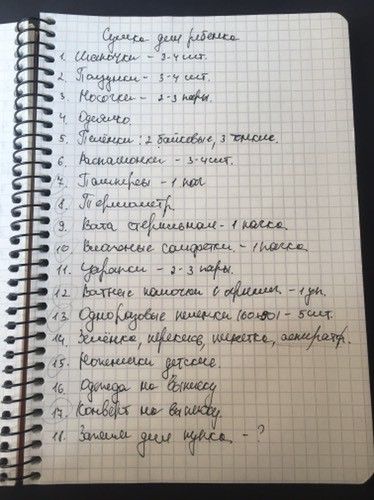 Сумка для ребенка
1. Шапочки - 3-4 шт.
2. Ползунки - 3-4 шт.
3. Носочки - 2-3 пары.
4. Одеяло
5. Пелёнки: 2 байковые, 3 тонкие.
6. Распашонки - 3-4 шт.
7. Памперсы - 1 пач
8. Термометр
9. Вата стерильная - 1 пачка.
10. Влажные салфетки - 1 пачка
11. Царапки - 2-3 пары.
12. Ватные палочки с огранич. - 1 уп.
13. Одноразовые пеленки (60×90) - 5 шт.
14. Зелёнка, перекись, пипетка, аспиратр.
15. Ножнички детские.
16. Одежда на выписку
17. Конверт на выписку.
18. Зажим для пупка - ?